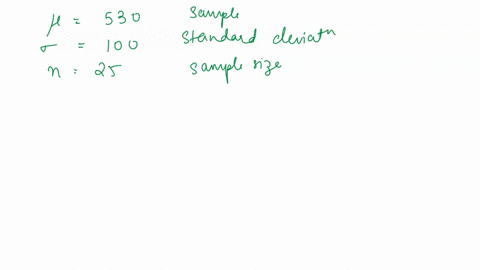 μ = 530 sample
σ = 100 standard deviatn
n = 25 sample size